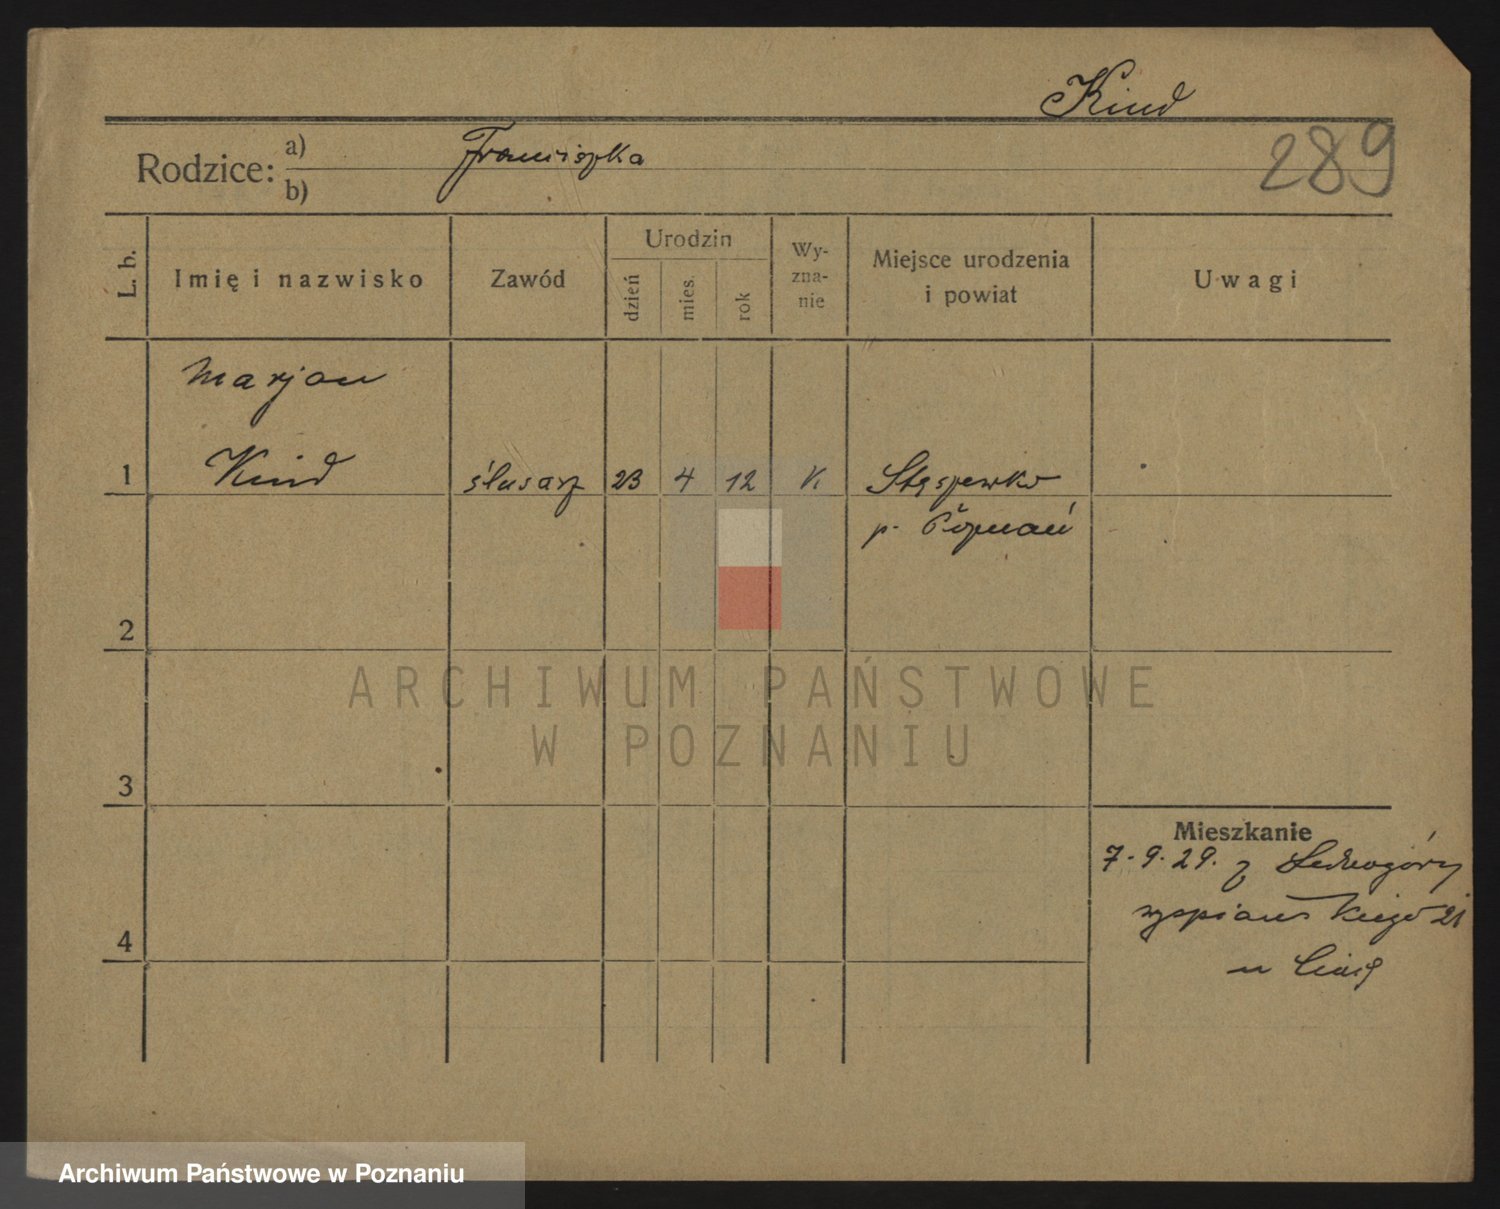 Kind
289
Rodzice: a) Franciszka
b)
L. b.
Imię i nazwisko
Zawód
Urodzin
dzień
mies.
rok
Wy-
zna-
nie
Miejsce urodzenia
i powiat
Uwagi
Marjan
1 Kind ślusarz 23 4 12 K Stęszewko
p. Poznań
2
ARCHIWUM PAŃSTWOWE
W POZNANIU
3
Mieszkanie
7.9.29. z
4
Archiwum Państwowe w Poznaniu